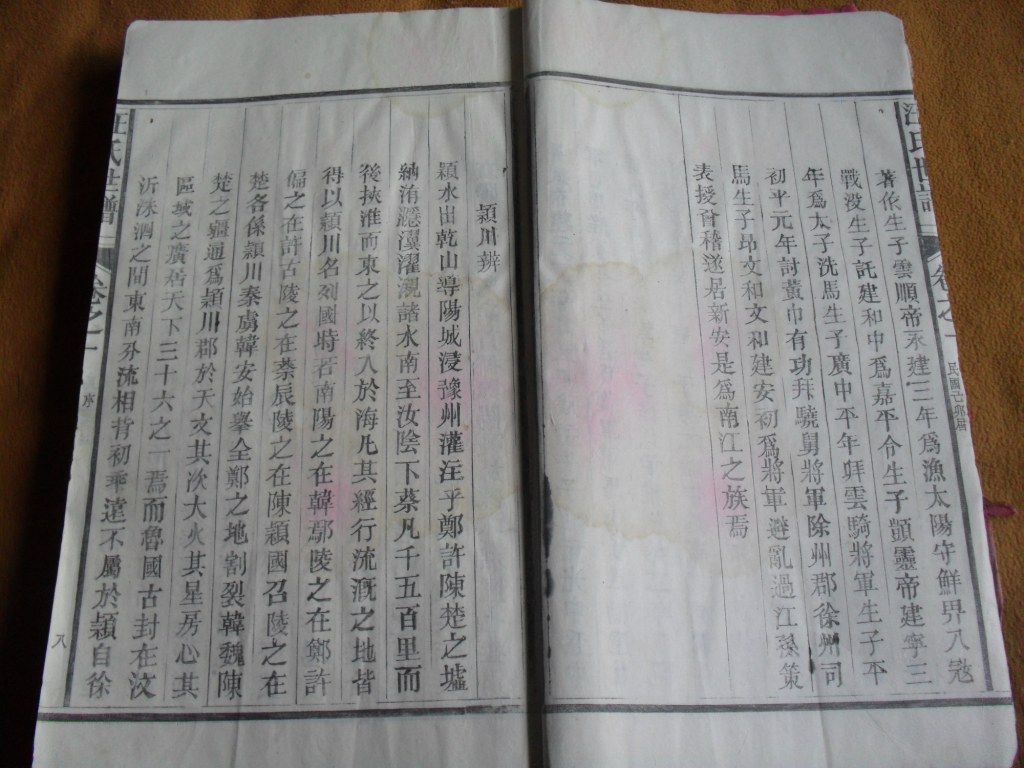 汪氏世譜
卷之一
著作生子雲順帝永建三年為漁太陽守鮮卑入寇
戰沒生子託建和中為嘉平令生子顗靈帝建寧三
年為太子洗馬生子廣中平年拜雲騎將軍生子平
初平元年討黃巾有功拜驍騎將軍除州郡徐州司
馬生子昂文和文和建安初為將軍避亂過江孫策
表授會稽遂居新安是為南江之族焉
潁川辨
潁水出乾山導陽城浸豫州灌注乎鄭許陳楚之墟
納洧灃濯溉諸水南至汝陰下蔡凡千五百里而
後挾淮而東之以終入於海凡其經行流溉之地皆
得以潁川名列國時若南陽之在韓鄢陵之在鄭許
偪之在許古陵之在蔡辰陵之在陳潁國召陵之在
楚各係潁川秦虜韓安始舉全鄭之地割裂韓魏陳
楚之疆通為潁川郡於天文其次大火其星房心其
區域之廣居天下三十六之一焉而魯國古封在汶
沂洙泗之間東南分流相背初乖遠不屬於潁自徐
汪氏世譜
卷之一
序
八